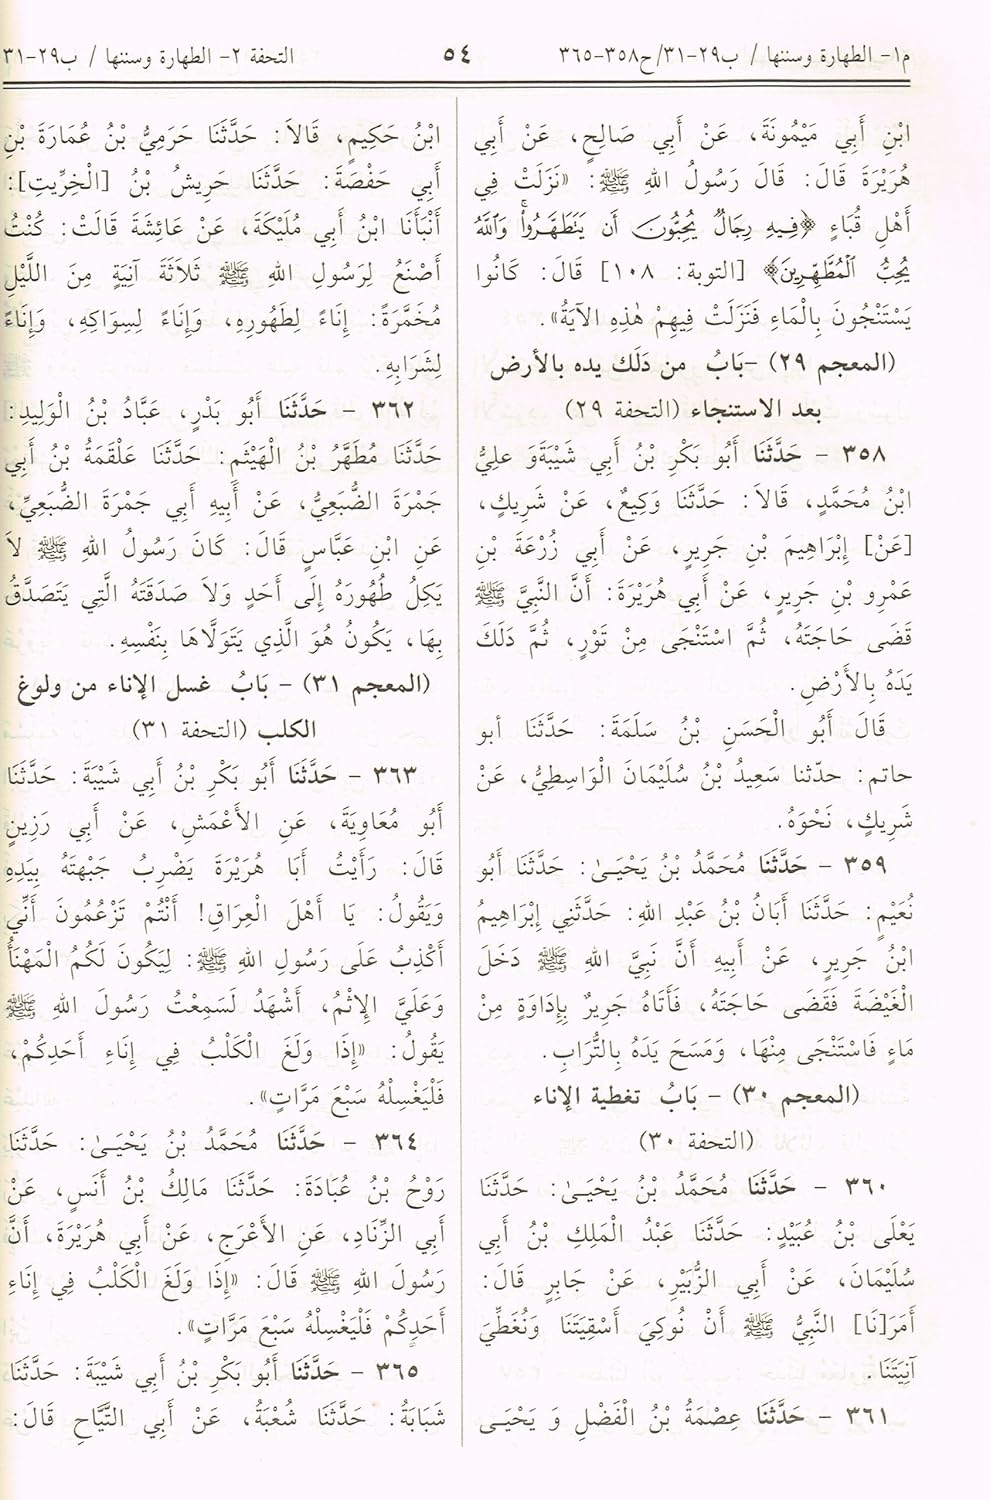 م١- الطهارة وسننها / ب٢٩-٣١/ح٣٥٨-٣٦٥
٥٤
التحفة ٢- الطهارة وسننها / ب٢٩-٣١
ابْنِ أَبِي مَيْمُونَةَ، عَنْ أَبِي صَالِحٍ، عَنْ أَبِي
هُرَيْرَةَ قَالَ: قَالَ رَسُولُ اللهِ ﷺ: «نَزَلَتْ فِي
أَهْلِ قُبَاءٍ ﴿فِيهِ رِجَالٌ يُحِبُّونَ أَن يَتَطَهَّرُوا۟ وَٱللَّهُ
يُحِبُّ ٱلْمُطَّهِّرِينَ﴾ [التوبة: ١٠٨] قَالَ: كَانُوا
يَسْتَنْجُونَ بِالْمَاءِ فَنَزَلَتْ فِيهِمْ هٰذِهِ الآيَةُ».
(المعجم ٢٩) -بَابُ من دَلَك يده بالأرض
بعد الاستنجاء (التحفة ٢٩)
٣٥٨ - حَدَّثَنَا أَبُو بَكْرِ بْنُ أَبِي شَيْبَةَ وَ عَلِيُّ
ابْنُ مُحَمَّدٍ، قَالاَ: حَدَّثَنَا وَكِيعٌ، عَنْ شَرِيكٍ،
[عَنْ] إِبْرَاهِيمَ بْنِ جَرِيرٍ، عَنْ أَبِي زُرْعَةَ بْنِ
عَمْرِو بْنِ جَرِيرٍ، عَنْ أَبِي هُرَيْرَةَ: أَنَّ النَّبِيَّ ﷺ
قَضَى حَاجَتَهُ، ثُمَّ اسْتَنْجَى مِنْ تَوْرٍ، ثُمَّ دَلَكَ
يَدَهُ بِالأَرْضِ.
قَالَ أَبُو الْحَسَنِ بْنُ سَلَمَةَ: حَدَّثَنَا أبو
حاتم: حدّثنا سَعِيدُ بْنُ سُلَيْمَانَ الْوَاسِطِيُّ، عَنْ
شَرِيكٍ، نَحْوَهُ.
٣٥٩ - حَدَّثَنَا مُحَمَّدُ بْنُ يَحْيَىٰ: حَدَّثَنَا أَبُو
نُعَيْمٍ: حَدَّثَنَا أَبَانُ بْنُ عَبْدِ اللهِ: حَدَّثَنِي إِبْرَاهِيمُ
ابْنُ جَرِيرٍ، عَنْ أَبِيهِ أَنَّ نَبِيَّ اللهِ ﷺ دَخَلَ
الْغَيْضَةَ فَقَضَى حَاجَتَهُ، فَأَتَاهُ جَرِيرٌ بِإِدَاوَةٍ مِنْ
مَاءٍ فَاسْتَنْجَى مِنْهَا، وَمَسَحَ يَدَهُ بِالتُّرَابِ.
(المعجم ٣٠) - بَابُ تغطية الإناء
(التحفة ٣٠)
٣٦٠ - حَدَّثَنَا مُحَمَّدُ بْنُ يَحْيَىٰ: حَدَّثَنَا
يَعْلَى بْنُ عُبَيْدٍ: حَدَّثَنَا عَبْدُ الْمَلِكِ بْنُ أَبِي
سُلَيْمَانَ، عَنْ أَبِي الزُّبَيْرِ، عَنْ جَابِرٍ قَالَ:
أَمَرَ[نَا] النَّبِيُّ ﷺ أَنْ نُوكِيَ أَسْقِيَتَنَا وَنُغَطِّيَ
آنِيَتَنَا.
٣٦١ - حَدَّثَنَا عِصْمَةُ بْنُ الْفَضْلِ وَ يَحْيَى
ابْنُ حَكِيمٍ، قَالاَ: حَدَّثَنَا حَرَمِيُّ بْنُ عُمَارَةَ بْنِ
أَبِي حَفْصَةَ: حَدَّثَنَا حَرِيشُ بْنُ [الْخِرِّيتِ]:
أَنْبَأَنَا ابْنُ أَبِي مُلَيْكَةَ، عَنْ عَائِشَةَ قَالَتْ: كُنْتُ
أَصْنَعُ لِرَسُولِ اللهِ ﷺ ثَلَاثَةَ آنِيَةٍ مِنَ اللَّيْلِ
مُخَمَّرَةً: إِنَاءً لِطَهُورِهِ، وَإِنَاءً لِسِوَاكِهِ، وَإِنَاءً
لِشَرَابِهِ.
٣٦٢ - حَدَّثَنَا أَبُو بَدْرٍ، عَبَّادُ بْنُ الْوَلِيدِ:
حَدَّثَنَا مُطَهَّرُ بْنُ الْهَيْثَمِ: حَدَّثَنَا عَلْقَمَةُ بْنُ أَبِي
جَمْرَةَ الضُّبَعِيُّ، عَنْ أَبِيهِ أَبِي جَمْرَةَ الضُّبَعِيِّ،
عَنِ ابْنِ عَبَّاسٍ قَالَ: كَانَ رَسُولُ اللهِ ﷺ لاَ
يَكِلُ طُهُورَهُ إِلَى أَحَدٍ وَلاَ صَدَقَتَهُ الَّتِي يَتَصَدَّقُ
بِهَا، يَكُونُ هُوَ الَّذِي يَتَوَلَّاهَا بِنَفْسِهِ.
(المعجم ٣١) - بَابُ غسل الإناء من ولوغ
الكلب (التحفة ٣١)
٣٦٣ - حَدَّثَنَا أَبُو بَكْرِ بْنُ أَبِي شَيْبَةَ: حَدَّثَنَا
أَبُو مُعَاوِيَةَ، عَنِ الأَعْمَشِ، عَنْ أَبِي رَزِينٍ
قَالَ: رَأَيْتُ أَبَا هُرَيْرَةَ يَضْرِبُ جَبْهَتَهُ بِيَدِهِ
وَيَقُولُ: يَا أَهْلَ الْعِرَاقِ! أَنْتُمْ تَزْعُمُونَ أَنِّي
أَكْذِبُ عَلَى رَسُولِ اللهِ ﷺ: لِيَكُونَ لَكُمُ الْمَهْنَأُ
وَعَلَيَّ الإِثْمُ، أَشْهَدُ لَسَمِعْتُ رَسُولَ اللهِ ﷺ
يَقُولُ: «إِذَا وَلَغَ الْكَلْبُ فِي إِنَاءِ أَحَدِكُمْ،
فَلْيَغْسِلْهُ سَبْعَ مَرَّاتٍ».
٣٦٤ - حَدَّثَنَا مُحَمَّدُ بْنُ يَحْيَىٰ: حَدَّثَنَا
رَوْحُ بْنُ عُبَادَةَ: حَدَّثَنَا مَالِكُ بْنُ أَنَسٍ، عَنْ
أَبِي الزِّنَادِ، عَنِ الأَعْرَجِ، عَنْ أَبِي هُرَيْرَةَ، أَنَّ
رَسُولَ اللهِ ﷺ قَالَ: «إِذَا وَلَغَ الْكَلْبُ فِي إِنَاءِ
أَحَدِكُمْ فَلْيَغْسِلْهُ سَبْعَ مَرَّاتٍ».
٣٦٥ - حَدَّثَنَا أَبُو بَكْرِ بْنُ أَبِي شَيْبَةَ: حَدَّثَنَا
شَبَابَةُ: حَدَّثَنَا شُعْبَةُ، عَنْ أَبِي التَّيَّاحِ قَالَ: